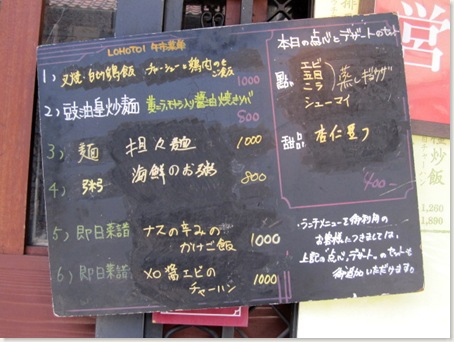 LOHOTOI 午市菜單
1) 叉焼・白切鶏飯 チャーシューと鶏肉のせご飯 1000
2) 豉油皇炒麺 黄ニラともやし入り醤油焼きソバ 800
3) 麺 担々麺 1000
4) 粥 海鮮のお粥 800
5) 即日菜譜 ナスの辛みのかけご飯 1000
6) 即日菜譜 XO醤エビのチャーハン 1000
本日の点心とデザートのセット
點心
エビ
五目
ニラ
蒸しギョウザ
シューマイ
甜品 杏仁豆フ
400
・ランチメニューを御利用の
お客様につきましては、
上記の「点心、デザート」のセットを
御追加いただけます。
営
炒飯
1,260
1,890